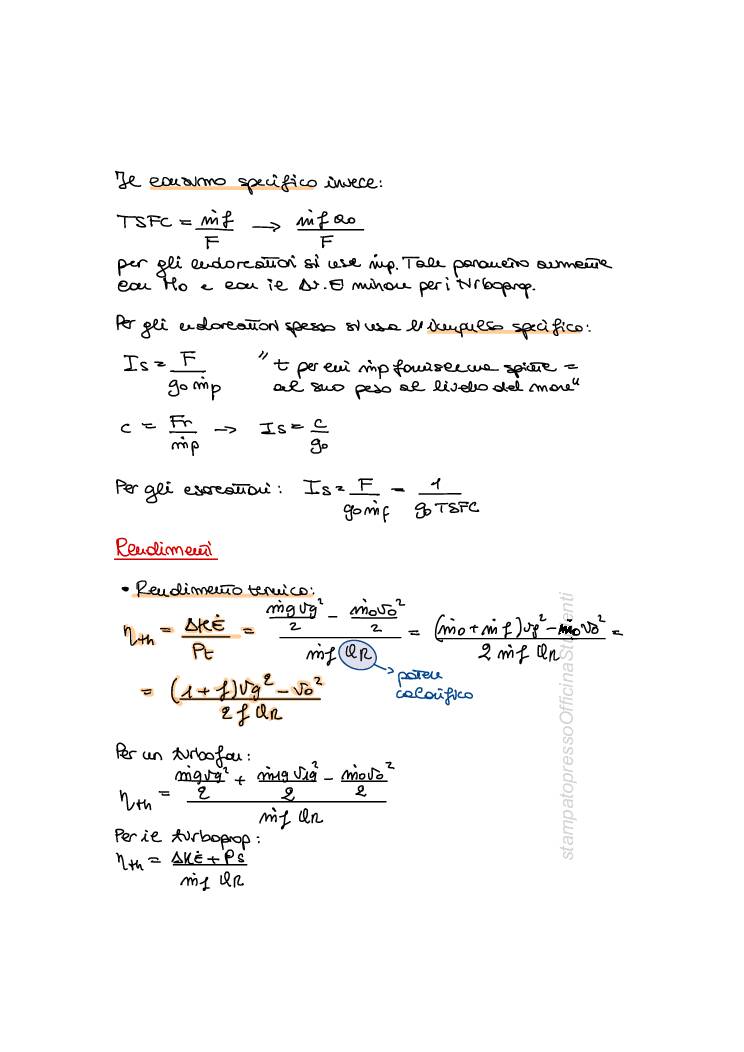 Il consumo specifico invece:
TSFC = ṁf/F → ṁf a0/F
per gli endoreattori si usa ṁp. Tale parametro aumenta
con M0 e con il Δv. È minore per i turboprop.
Per gli endoreattori spesso si usa l'impulso specifico:
Is = F/(g0 ṁp) "t per cui ṁp fornisce una spinta =
al suo peso al livello del mare"
c = Fr/ṁp → Is = c/g0
Per gli esoreattori: Is = F/(g0 ṁf) = 1/(g0 TSFC)
Rendimenti
• Rendimento termico:
ηth = ΔKĖ/Pt = (ṁg vg²/2 − ṁ0 v0²/2)/(ṁf QR) = ((ṁ0 + ṁf) vg² − ṁ0 v0²)/(2 ṁf QR) =
→ potere
calorifico
= ((1 + f) vg² − v0²)/(2 f QR)
Per un turbofan:
ηth = (ṁg vg²/2 + ṁ1g v1g²/2 − ṁ0 v0²/2)/(ṁf QR)
Per il turboprop:
ηth = (ΔKĖ + Ps)/(ṁf QR)